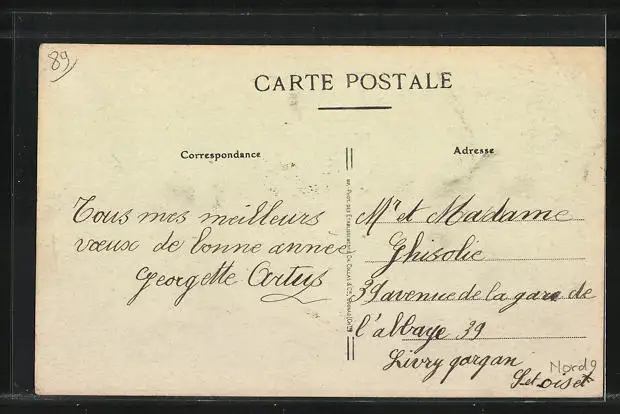 89
CARTE POSTALE
Correspondance
Adresse
Tous mes meilleurs
vœux de bonne année
Georgette Artus
Mr et Madame
Ghisolie
39 avenue de la gare de
l'abbaye 39
Livry gargan
S et oise
Nord 9